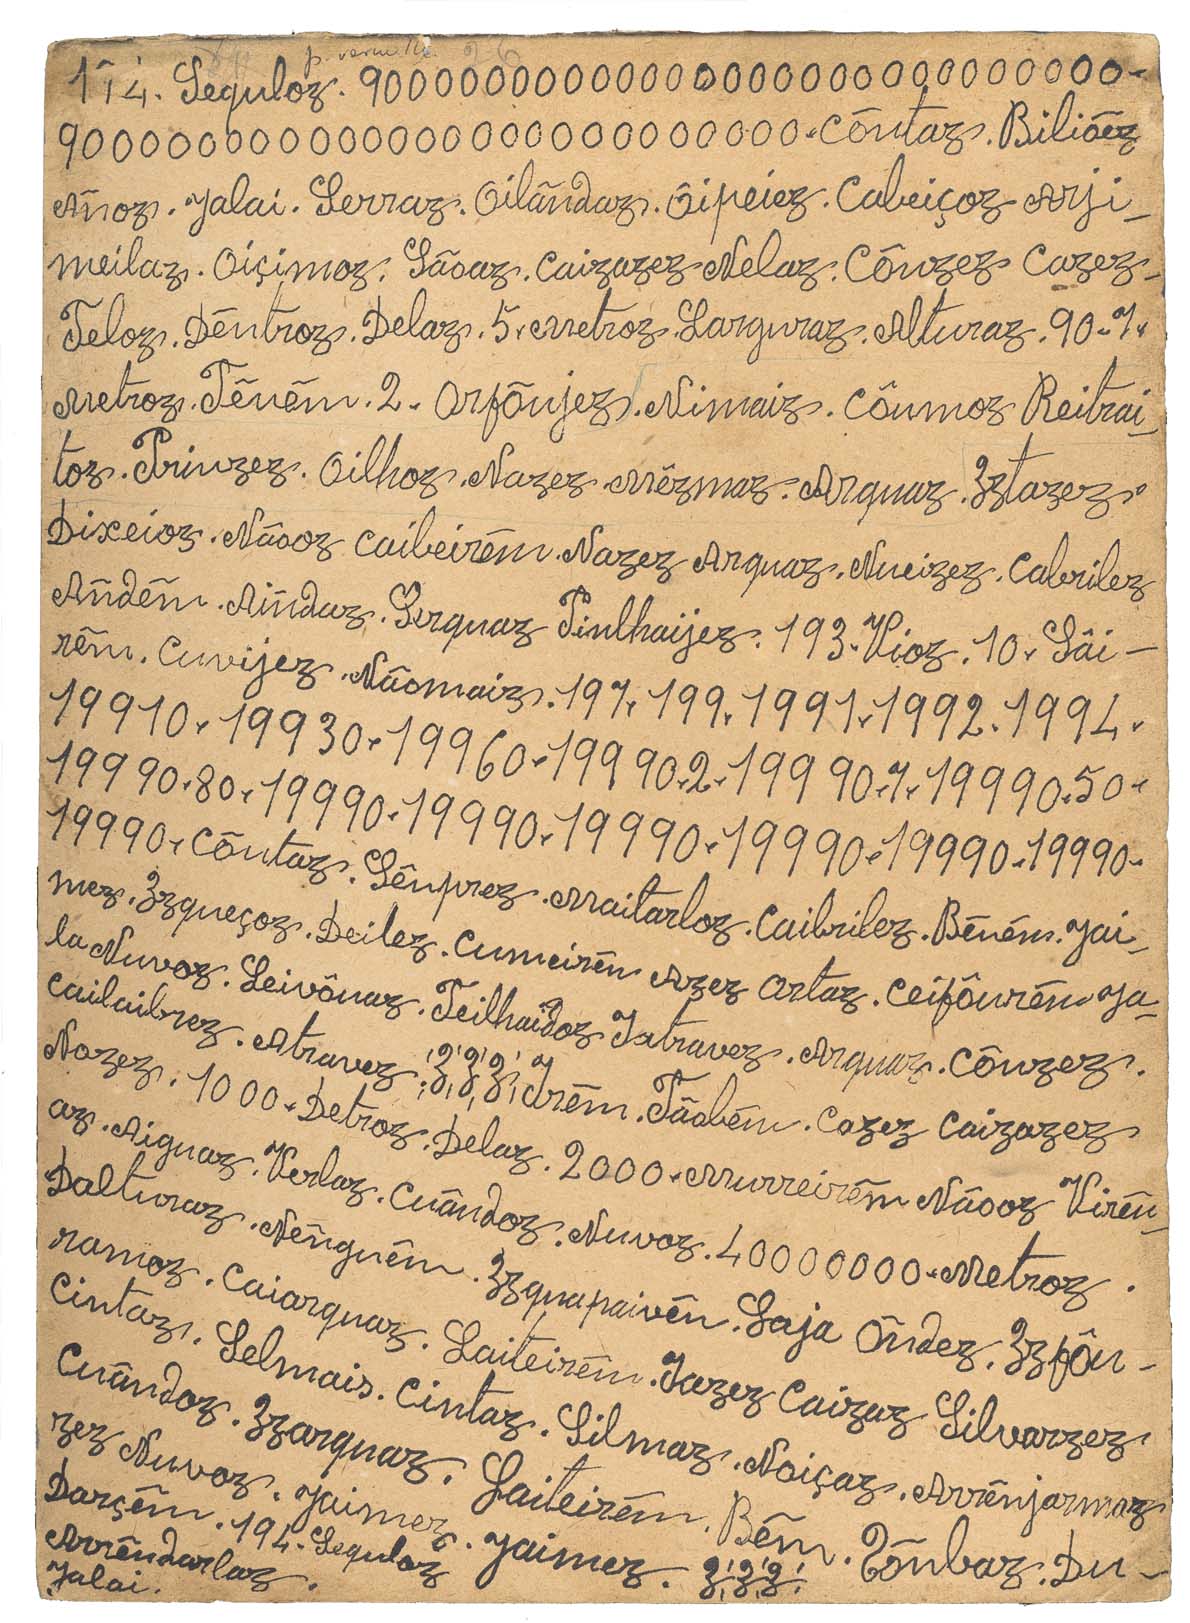 114. Sequloz. 9000000000000000000000000000-
900000000000000000000000000. Cõntaz. Biliõez
Añoz. Jalai. Serraz. Oilãndaz. Ôipeiez. Cabeiçoz Arji-
meilaz. Oiçimoz. Sãoaz. Caizazez Nelaz. Cônzez Cazez-
Teloz. Dēntroz. Delaz. 5. Metroz Larguraz. Alturaz. 90.7.
Metroz. Tēnēm. 2. Orfõnjez. Nimaiz. Cônmoz Reitrai-
toz. Prinzez. Oilhoz. Nazez Mēzmaz. Arquaz. Ʒztazez.
Dixeioz. Nãooz Caibeirēm. Nazez Arquaz. Nueizez. Cabrilez
Añdēm. Aiñdaz. Serquaz Pinlhaijez. 193. Vioz. 10. Sâi-
rēm. Cuvijez. Nãomaiz. 197. 199. 1991. 1992. 1994.
19910. 19930. 19960. 19990.2. 19990.7. 19990.50.
19990.80. 19990. 19990. 19990. 19990. 19990. 19990-
19990. Cõntaz. Sênprez. Maitarloz. Caibrilez. Bēnēm. Jai-
mez. Ʒzqueçoz. Deilez. Cumeirēm Azez Ortaz. Ceifôurēm Ja-
la Nuvoz. Leivônaz. Teilhaidoz Jxtravez. Arquaz. Cônzez.
Cailaibrez. Atravez. Ʒ!Ʒ!Ʒ! Jrēm. Tãobēm. Cazez Caizazez
Nazez. 1000. Detroz. Delaz. 2000. Murreirēm Nãooz Virēn-
az. Aiguaz. Verlaz. Cuãndoz. Nuvoz. 40000000. Metroz.
Dalturaz. Nēnguēm. Ʒzquapaivēn. Saja Ôndez. Ʒzfôn-
ramoz. Caiarquaz. Saiteirēm. Jazez Caizaz Silvarzez
Cintaz. Selmais. Cintaz. Silmaz. Noiçaz. Arrēnjarmaz
Cuãndoz. Ʒzarquaz. Saiteirēm. Bēm. Tõnbaz. Du-
zez Nuvoz. Jaimez. Jaimez. Ʒ!Ʒ!Ʒ!
Darçēm. 194. Sequloz
Arrēndarlaz.
Jalai.